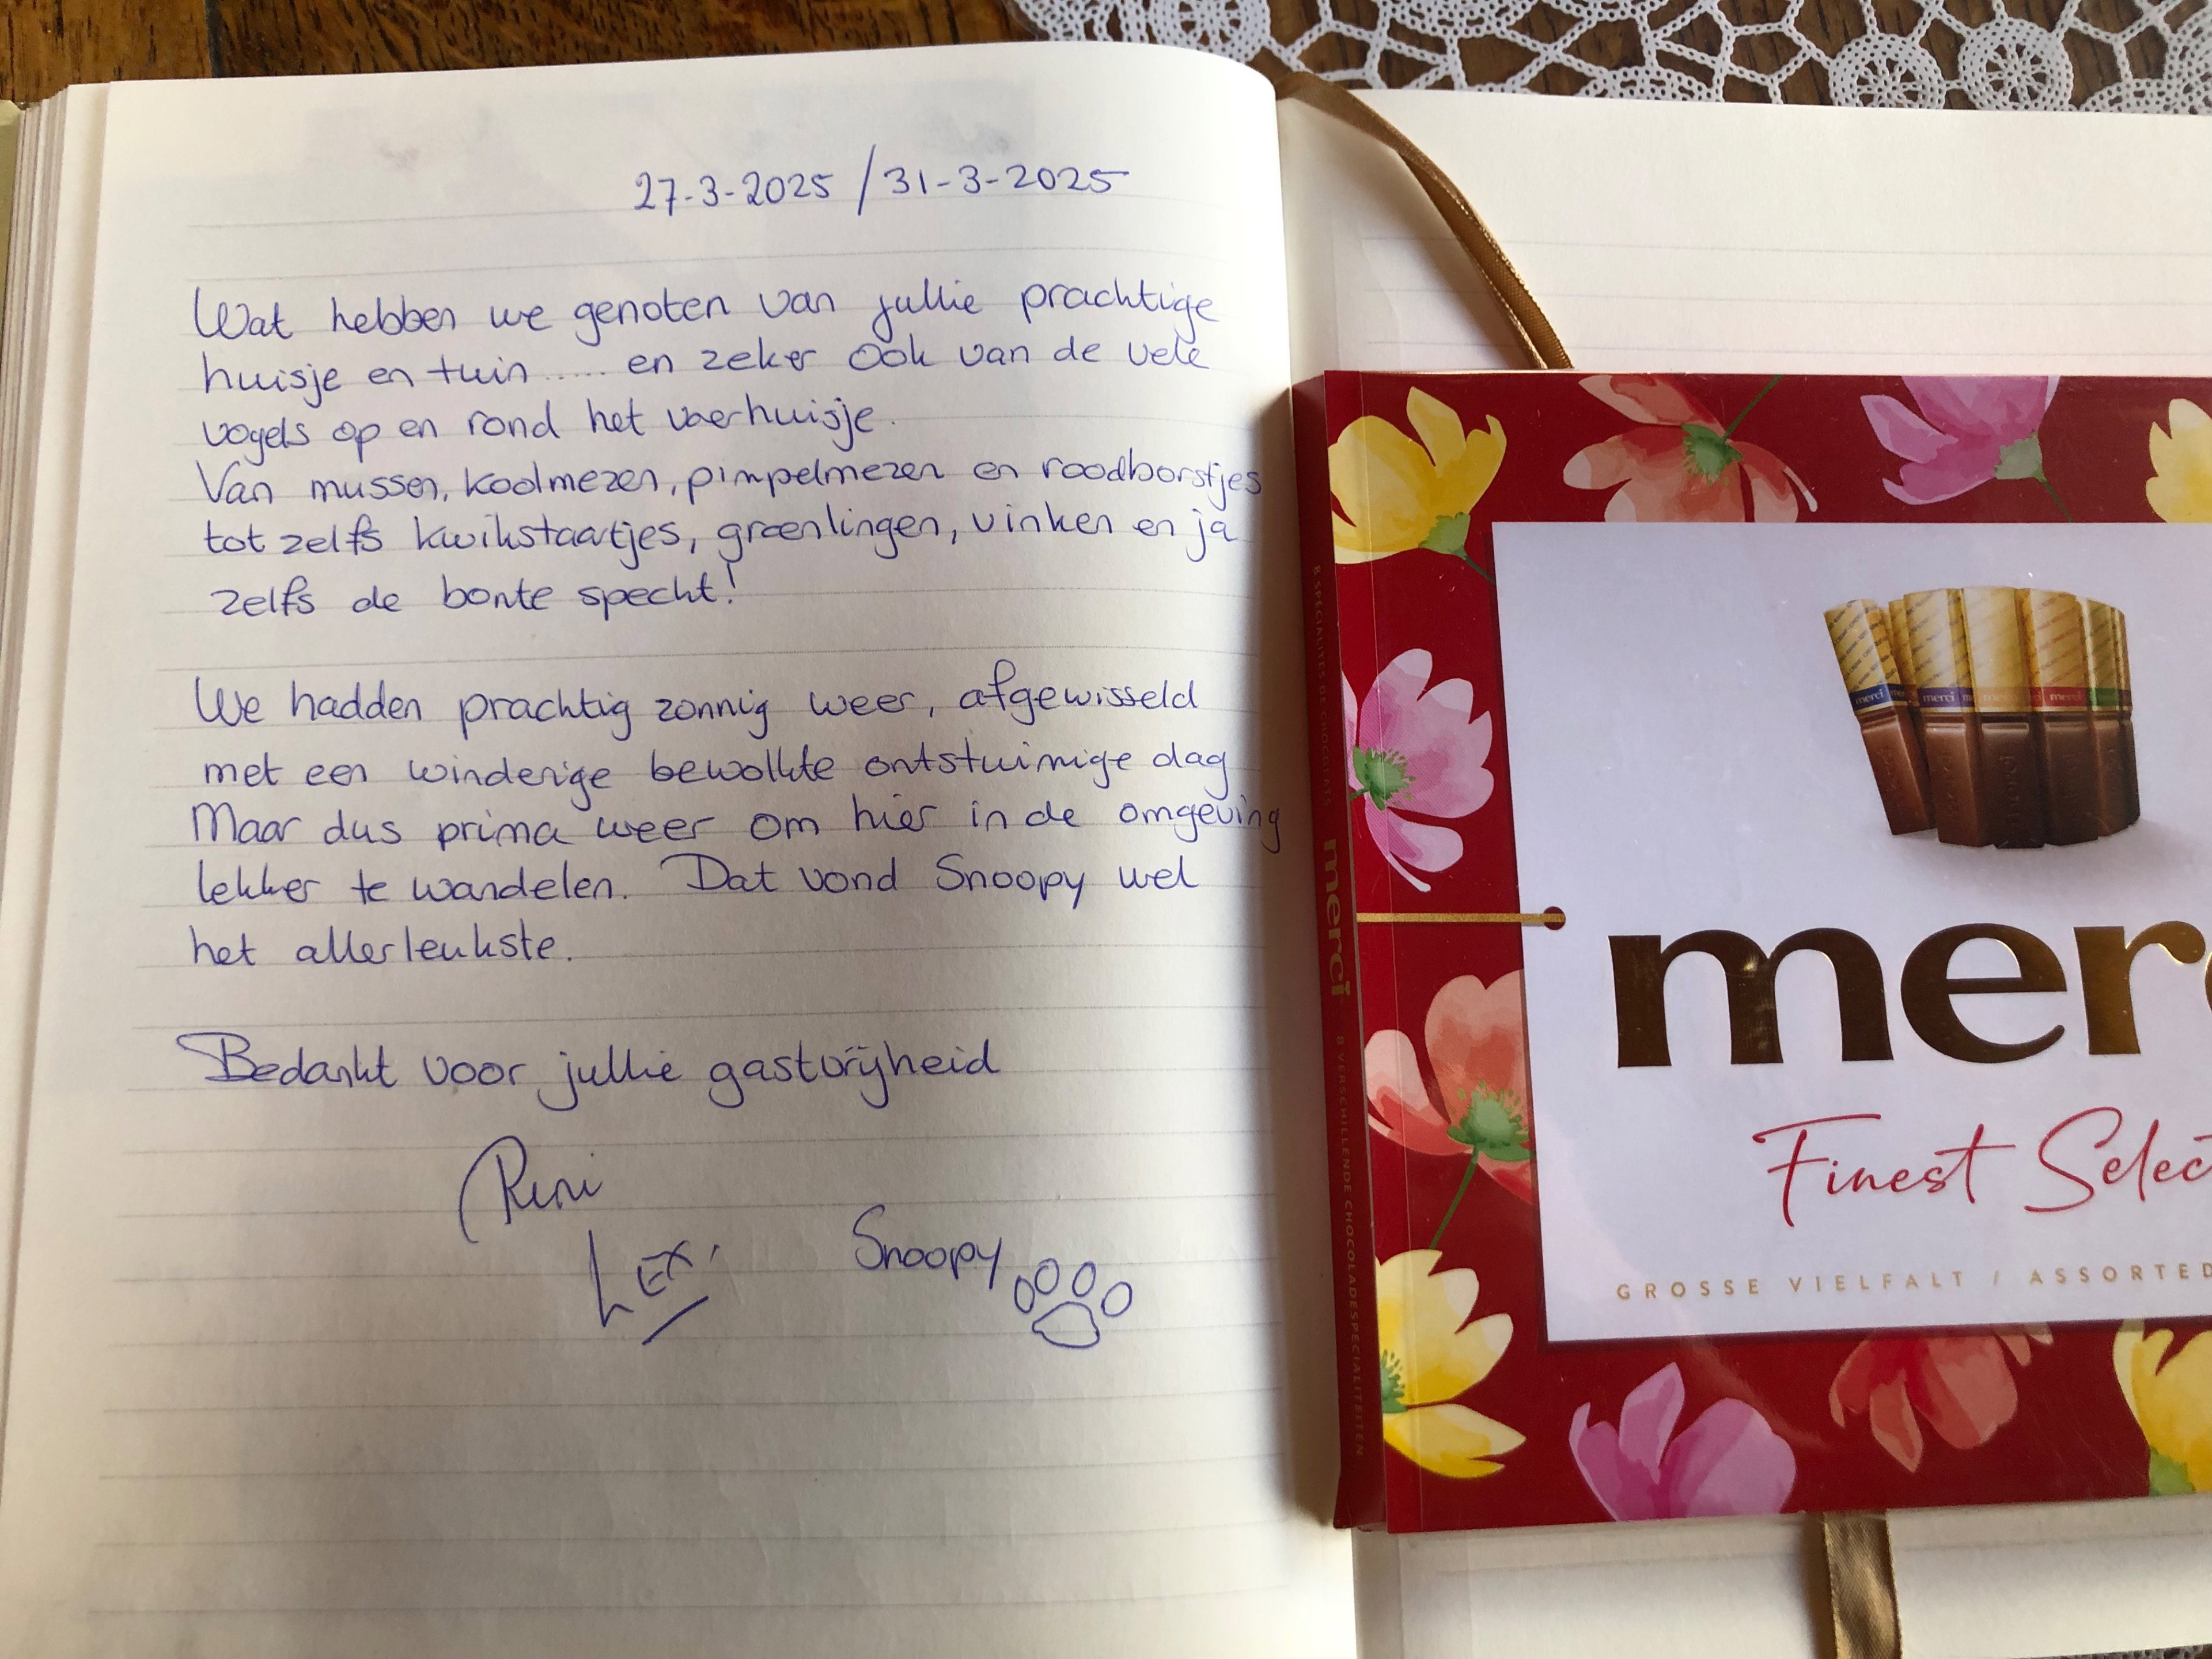 27-3-2025 / 31-3-2025
Wat hebben we genoten van jullie prachtige
huisje en tuin ..... en zeker ook van de vele
vogels op en rond het voerhuisje.
Van mussen, koolmezen, pimpelmezen en roodborstjes
tot zelfs kwikstaartjes, groenlingen, vinken en ja
zelfs de bonte specht!
We hadden prachtig zonnig weer, afgewisseld
met een winderige bewolkte onstuimige dag
Maar dus prima weer om hier in de omgeving
lekker te wandelen. Dat vond Snoopy wel
het allerleukste.
Bedankt voor jullie gastvrijheid
Lex
Snoopy
8 SPÉCIALITÉS DE CHOCOLATS
merci
8 VERSCHILLENDE CHOCOLADESPECIALITEITEN
merci
merci
merci
merci
merc
Finest Select
GROSSE VIELFALT / ASSORTED